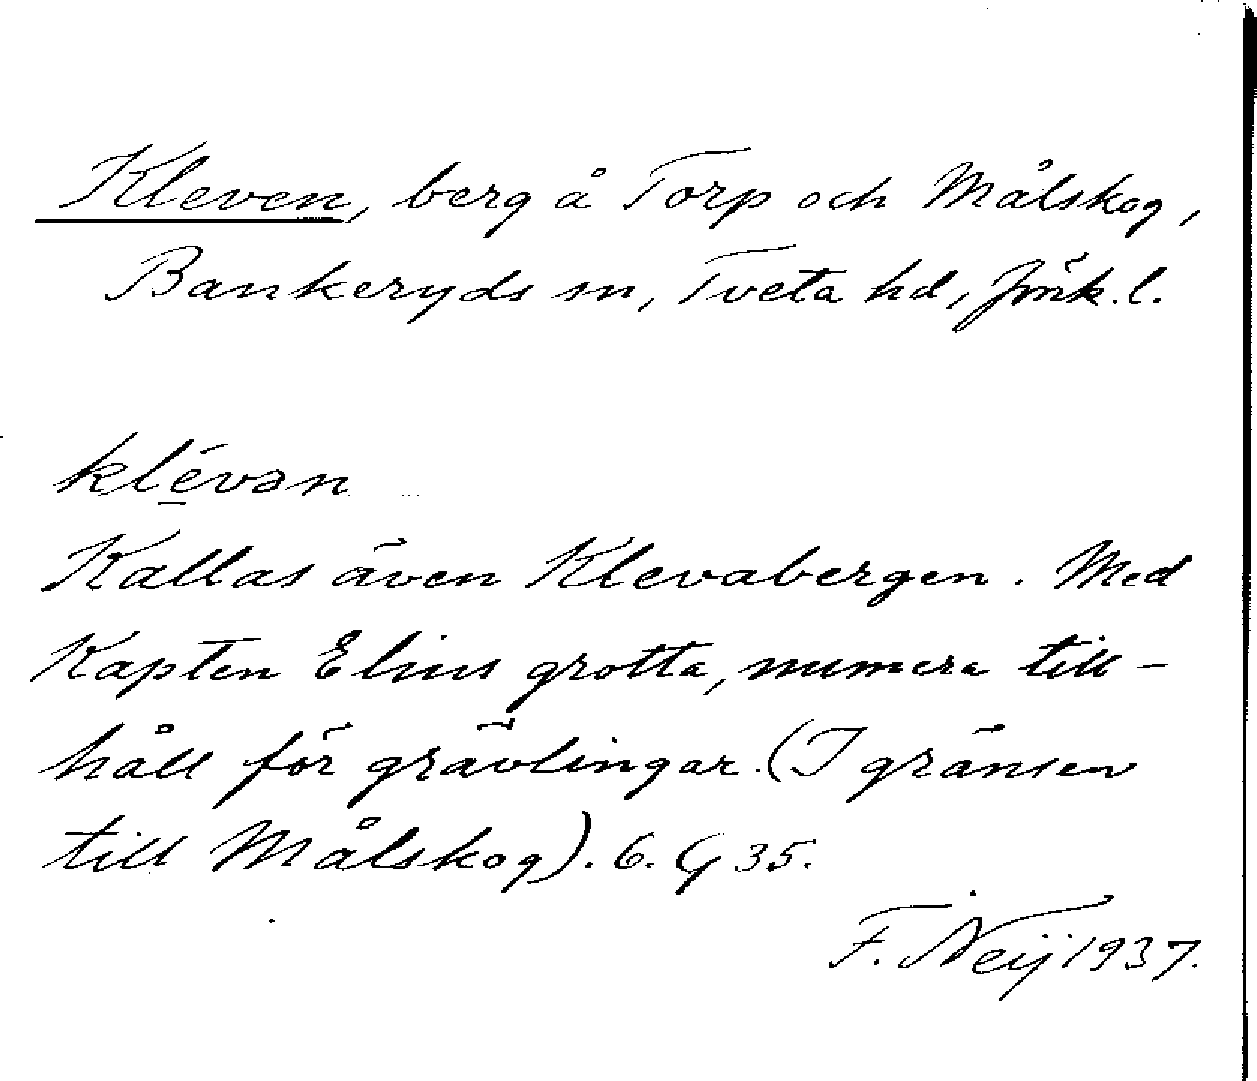 Kleven, berg å Torp och Målskog,
Bankeryds sn, Tveta hd, Jönk. l.
klévən
Kallas även Klevabergen. Med
Kapten Elins grotta, numera till-
håll för grävlingar. (I gränsen
till Målskog). 6. G 35.
F. Neij 1937.